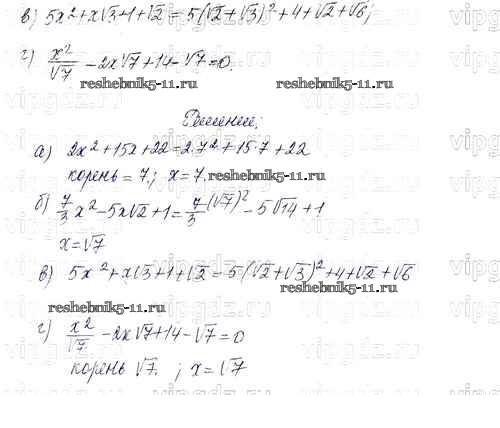 в) 5x²+x√3+1+√2 = 5(√2+√3)²+4+√2+√6;
г) x²/√7 - 2x√7+14-√7=0.
reshebnik5-11.ru reshebnik5-11.ru
Решение;
а) 2x²+15x+22=2·7²+15·7+22
корень = 7; x=7.
reshebnik5-11.ru
б) 7/3 x²-5x√2+1= 7/3 (√7)² - 5√14+1
x=√7
в) 5x²+x√3+1+√2=5(√2+√3)²+4+√2+√6
reshebnik5-11.ru
reshebnik5-11.ru
г) x²/√7 - 2x√7+14-√7=0
корень √7. ; x=√7